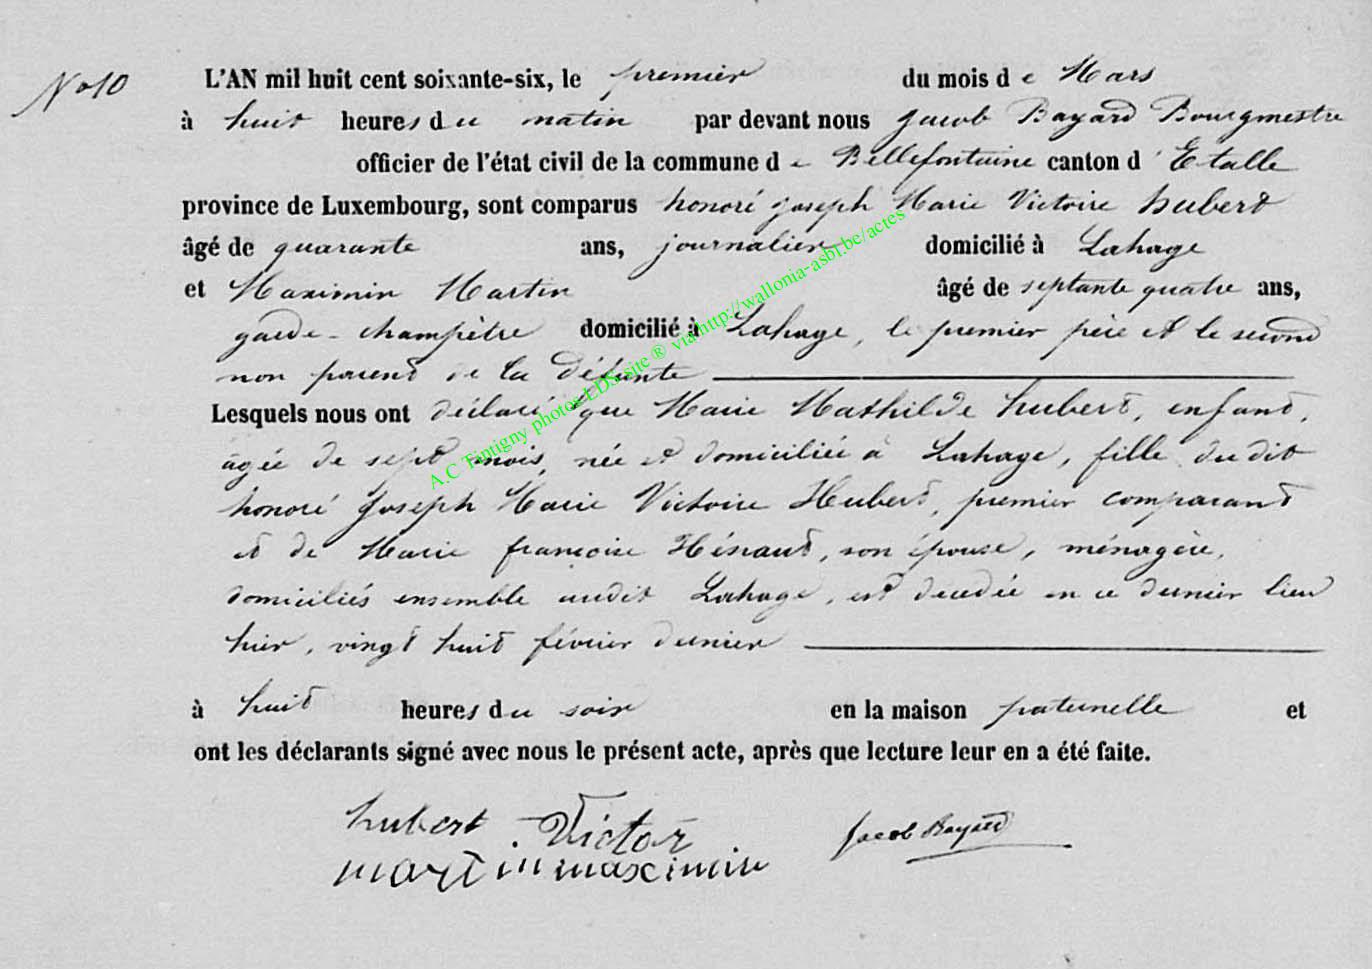 No 10
L'AN mil huit cent soixante-six, le premier du mois de Mars
à huit heures du matin par devant nous Jacob Bayard Bourgmestre
officier de l'état civil de la commune de Bellefontaine canton d'Etalle
province de Luxembourg, sont comparus honoré joseph Marie Victoire hubert
âgé de quarante ans, journalier domicilié à Lahage
et Maximin Martin âgé de septante quatre ans,
garde-champêtre domicilié à Lahage, le premier père et le second
non parent de la défunte
Lesquels nous ont déclaré que Marie Mathilde hubert, enfant,
âgée de sept mois, née et domiciliée à Lahage, fille dudit
honoré Joseph Marie Victoire Hubert, premier comparant
et de Marie françoise Hénaut, son épouse, ménagère,
domiciliés ensemble audit Lahage, est décédée en ce dernier lieu
hier, vingt huit février dernier
à huit heures du soir en la maison paternelle et
ont les déclarants signé avec nous le présent acte, après que lecture leur en a été faite.
hubert Victor
Jacob Bayard
martin maximin
A.C Tintigny photos EDS site ® via http://wallonia-asbl.be/actes